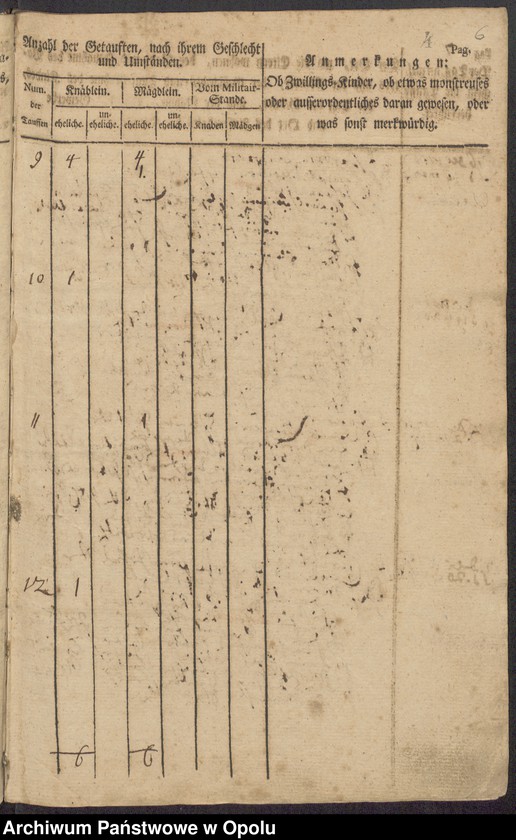 4 6
Anzahl der Getauften, nach ihrem Geschlecht und Umständen.
Num. der Tauffen
Knäblein.
eheliche.
un-eheliche.
Mägdlein.
eheliche.
un-eheliche.
Vom Militair-Stande.
Knaben
Mädgen
Pag.
Anmerkungen:
Ob Zwillings-Kinder, ob etwas monstreuses
oder ausserordentliches daran gewesen, oder
was sonst merkwürdig.
9 4 4
1.
10 1
11 1
12 1
6 6
Archiwum Państwowe w Opolu